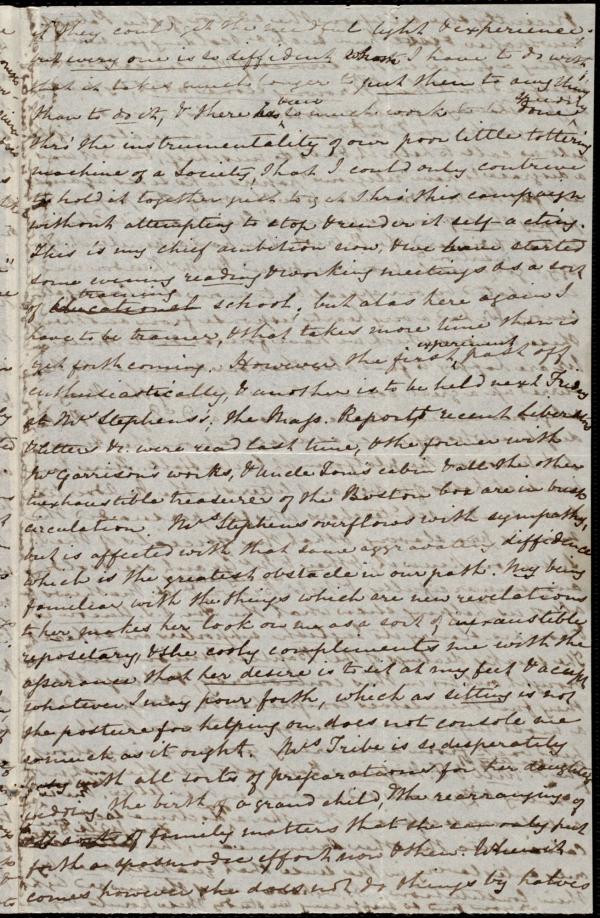 if they could get the needful light & experience;
but every one is so diffident whom I have to do with
that it takes much longer to put them to anything
than to do it, & there has been so much work to be speedily done
thro' the instrumentality of our poor little tottering
machine of a Society, that I could only contrive
to hold it together just to get thro' this campaign
without attempting to stop & render it self-acting.
This is my chief ambition now, & we have started
some evening reading & working meetings as a sort
of educational training school; but alas here again I
have to be trainer, & that takes more time than is
yet forthcoming. However the first experiment past off
enthusiastically, & another is to be held next Friday
at Mrs Stephens's. The Mass. Report, recent Liberators
& letters &c. were read last time, & the former with
Mr Garrison's works, & Uncle Tom's cabin & all the other
inexhaustible treasures of the Boston box are in busy
circulation. Mrs Stephens overflows with sympathy,
but is affected with that same aggravating diffidence
which is the greatest obstacle in our path. My being
familiar with the things which are new revelations
to her, makes her look on me as a sort of inexaustible
repositary, & she cooly compliments me with the
assurance that her desire is to sit at my feet & accept
whatever I may pour forth, which as sitting is not
the posture for helping on does not console me
so much as it ought. Mrs Tribe is so desperately
busy with all sorts of preparations for her daughter's
wedding, the birth of a grand child, & the rearranging of
all sorts of family matters that she can only put
forth a spasmodic effort now & then. When it
comes however she does not do things by halves